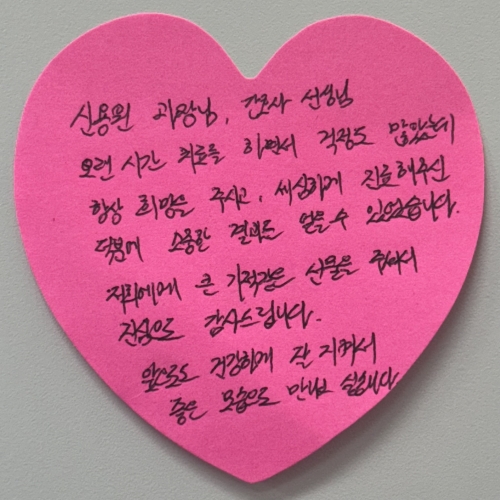 신용원 과장님, 간호사 선생님
오랜 시간 치료를 하면서 걱정도 많았는데
항상 희망을 주시고, 세심하게 진료해주신
덕분에 소중한 결과를 얻을 수 있었습니다.
저희에게 큰 기적같은 선물을 주셔서
진심으로 감사드립니다.
앞으로도 건강하게 잘 지켜서
좋은 모습으로 만나고 싶습니다